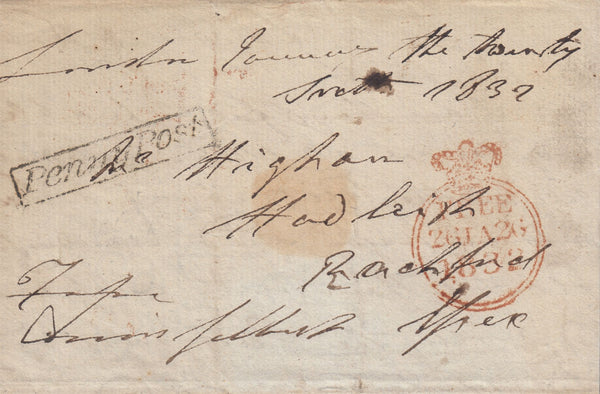 London January the twenty
Sixth 1832
Penny Post
Mr Higham
Hadleigh
Rochford
Essex
FREE
26JA26
1832